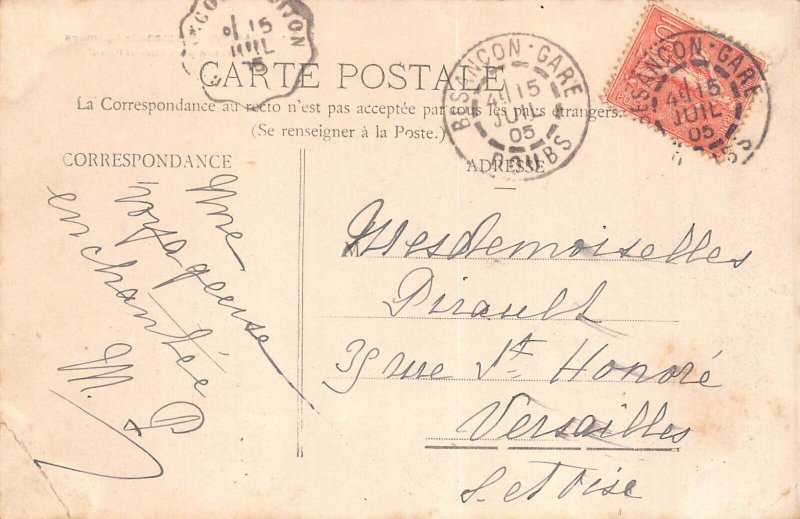 CARTE POSTALE
La Correspondance au recto n'est pas acceptée par tous les pays étrangers.
(Se renseigner à la Poste.)
CORRESPONDANCE
ADRESSE
BESANÇON - GARE
15
JUIL
05
DOUBS
BESANÇON - GARE
15
JUIL
05
15
JUIL
Une
voyageuse
enchantée
M. P
Mesdemoiselles
Pirault
35 rue St Honoré
Versailles
S. et Oise